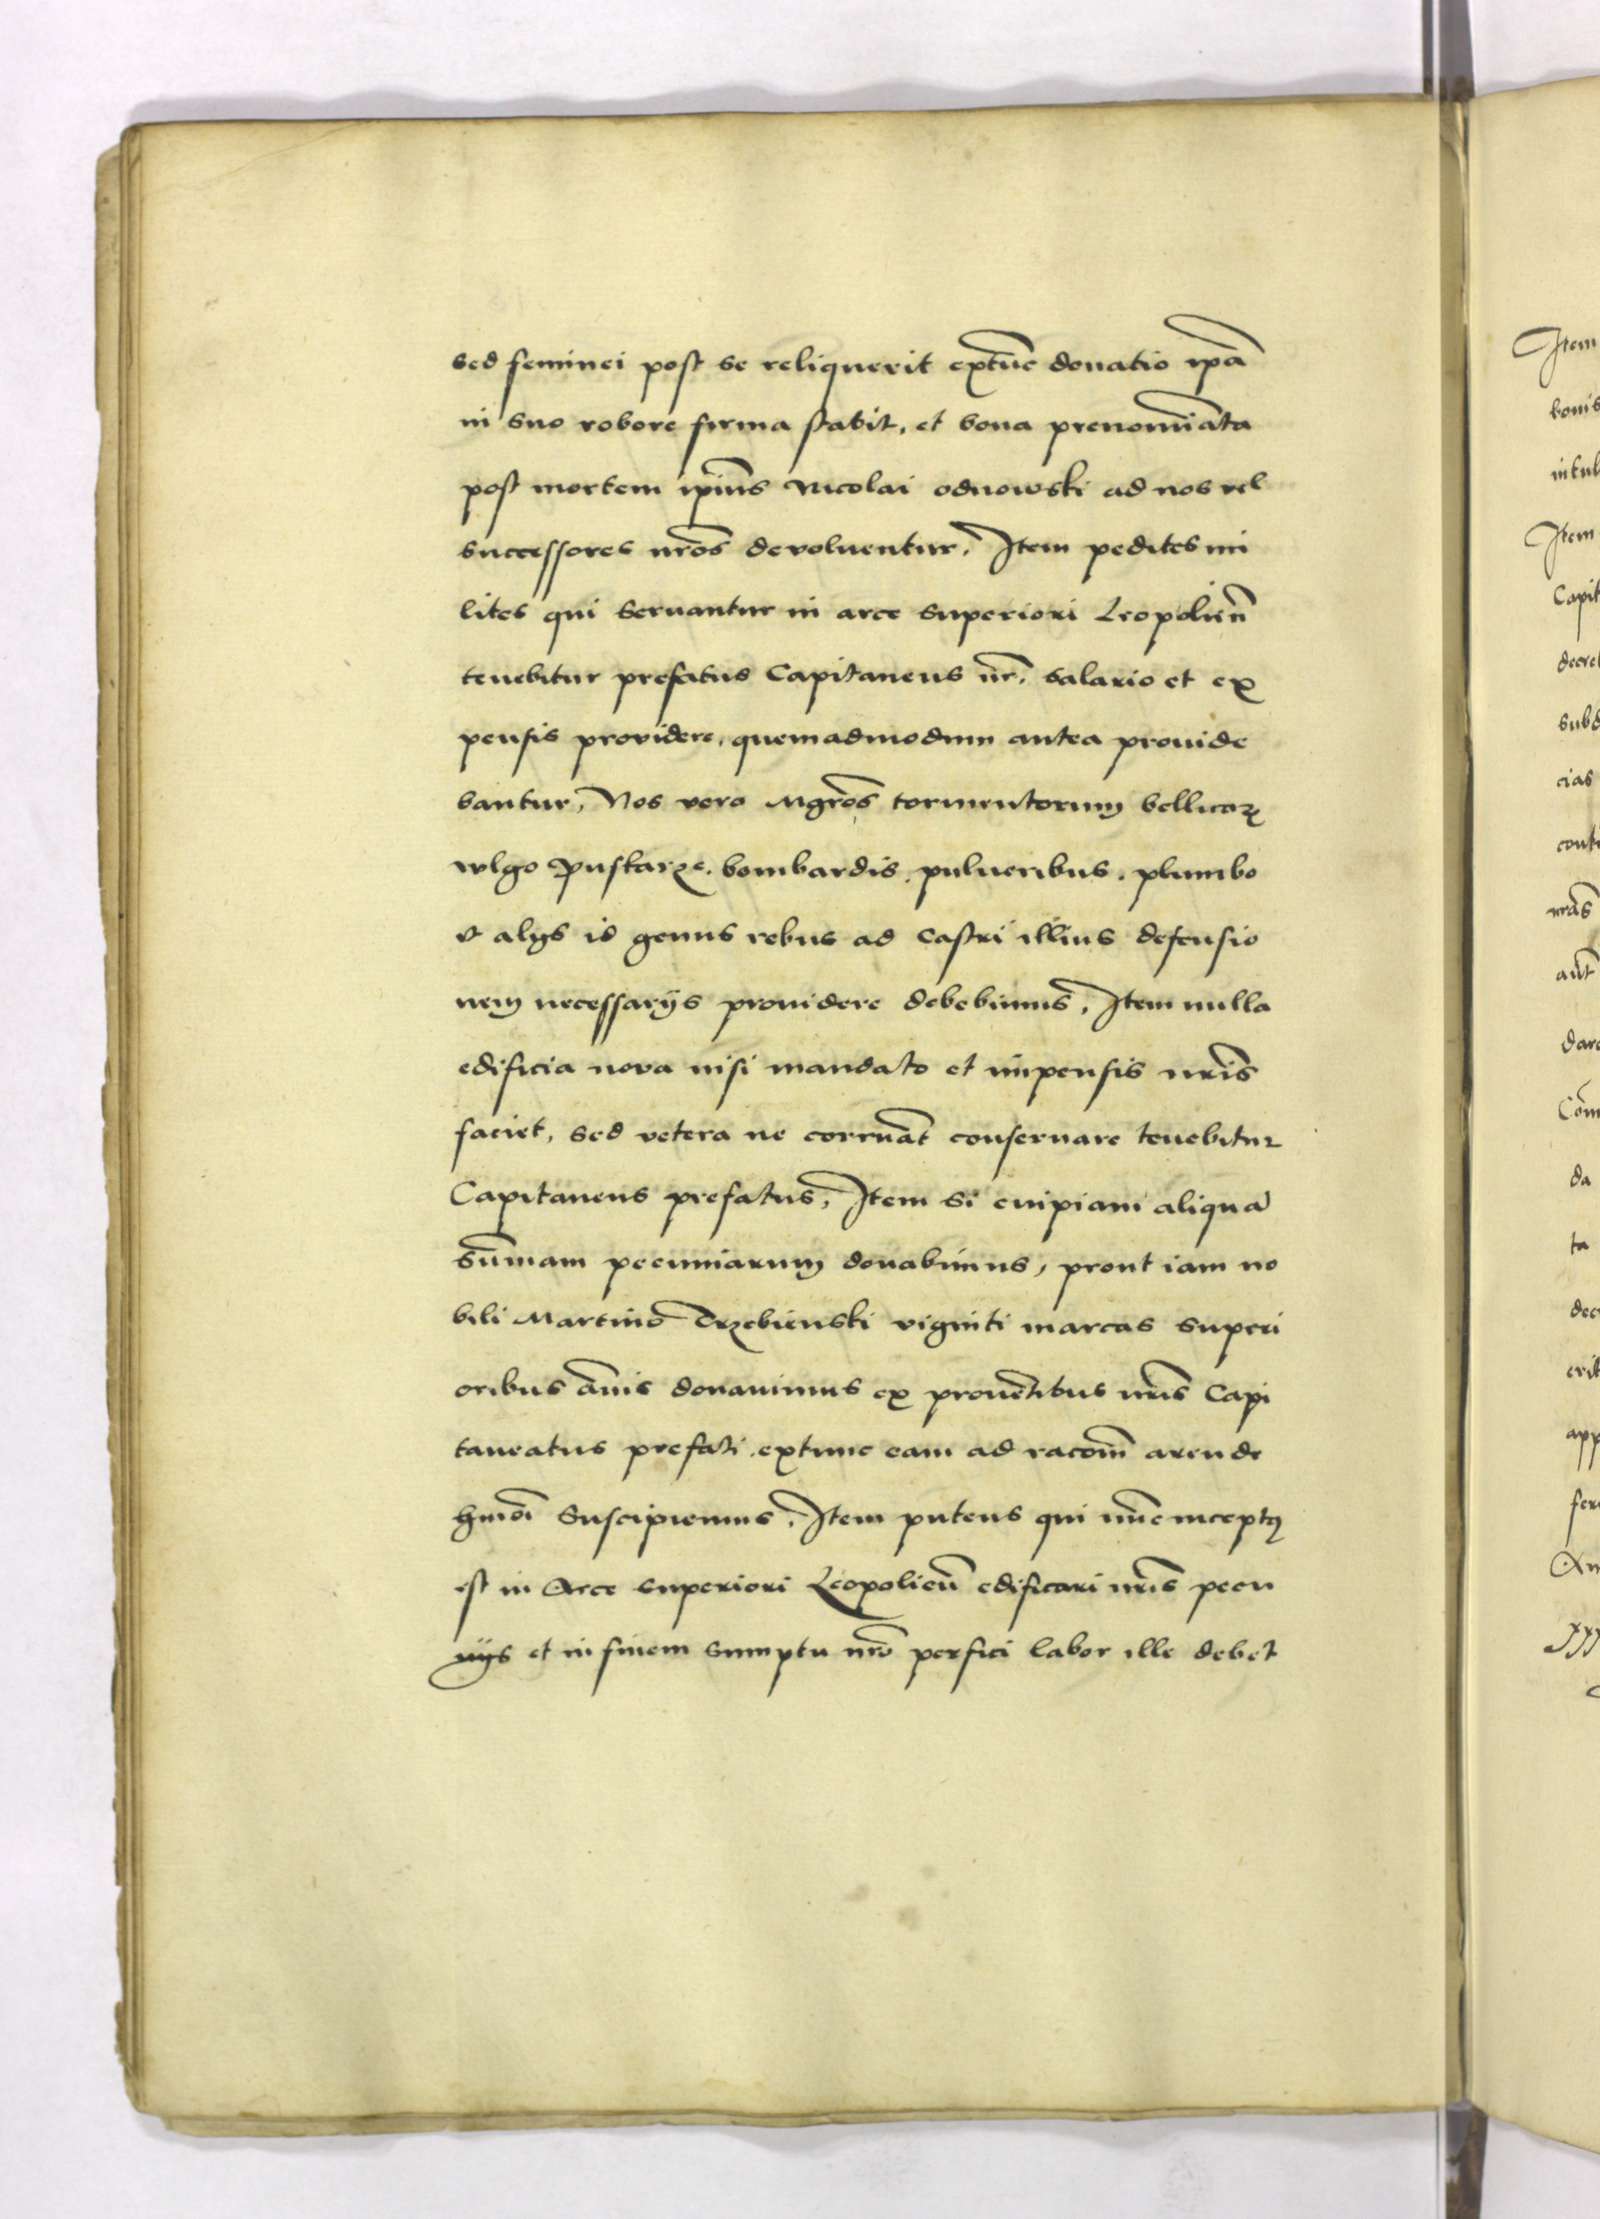 sed feminei post se reliquerit extūc donatio ipā
in suo robore firma stabit, et bona prenomīata
post mortem ipīus Nicolai odnowski ad nos vel
successores nrōs devoluentur, Item pedites mi
lites qui seruantur in arce superiori Leopolieñ
tenebitur prefatus Capitaneus nr̄. salario et ex
pensis providere, quemadmodum antea prouide
bantur, Nos vero Mgrōs tormentorum bellicoꝝ
wlgo Puskarze, bombardis, pulueribus, plumbo
et alijs id genus rebus ad castri illius defensio
nem necessarijs prouidere debebimus, Item nulla
edificia nova nisi mandato et impensis nrīs
faciet, sed vetera ne corruāt conseruare tenebitur
Capitaneus prefatus, Item si cuipiam aliquā
sūmam pecuniarum donabimus, prout iam no
bili Martino Trzebienski viginti marcas superi
oribus ānis donauimus ex prouētibus nrīs Capi
taneatus prefati, extunc eam ad racōm̄ arende
hmōi suscipiemus, Item puteus qui nūc inceptꝰ
est in Arce superiori Leopolieñ edificari nrīs pecu
nijs et in finem sumptu nrō perfici labor ille debet
Item
bonis
Item
Capit
cias
nrās
aūt
da
ta
app